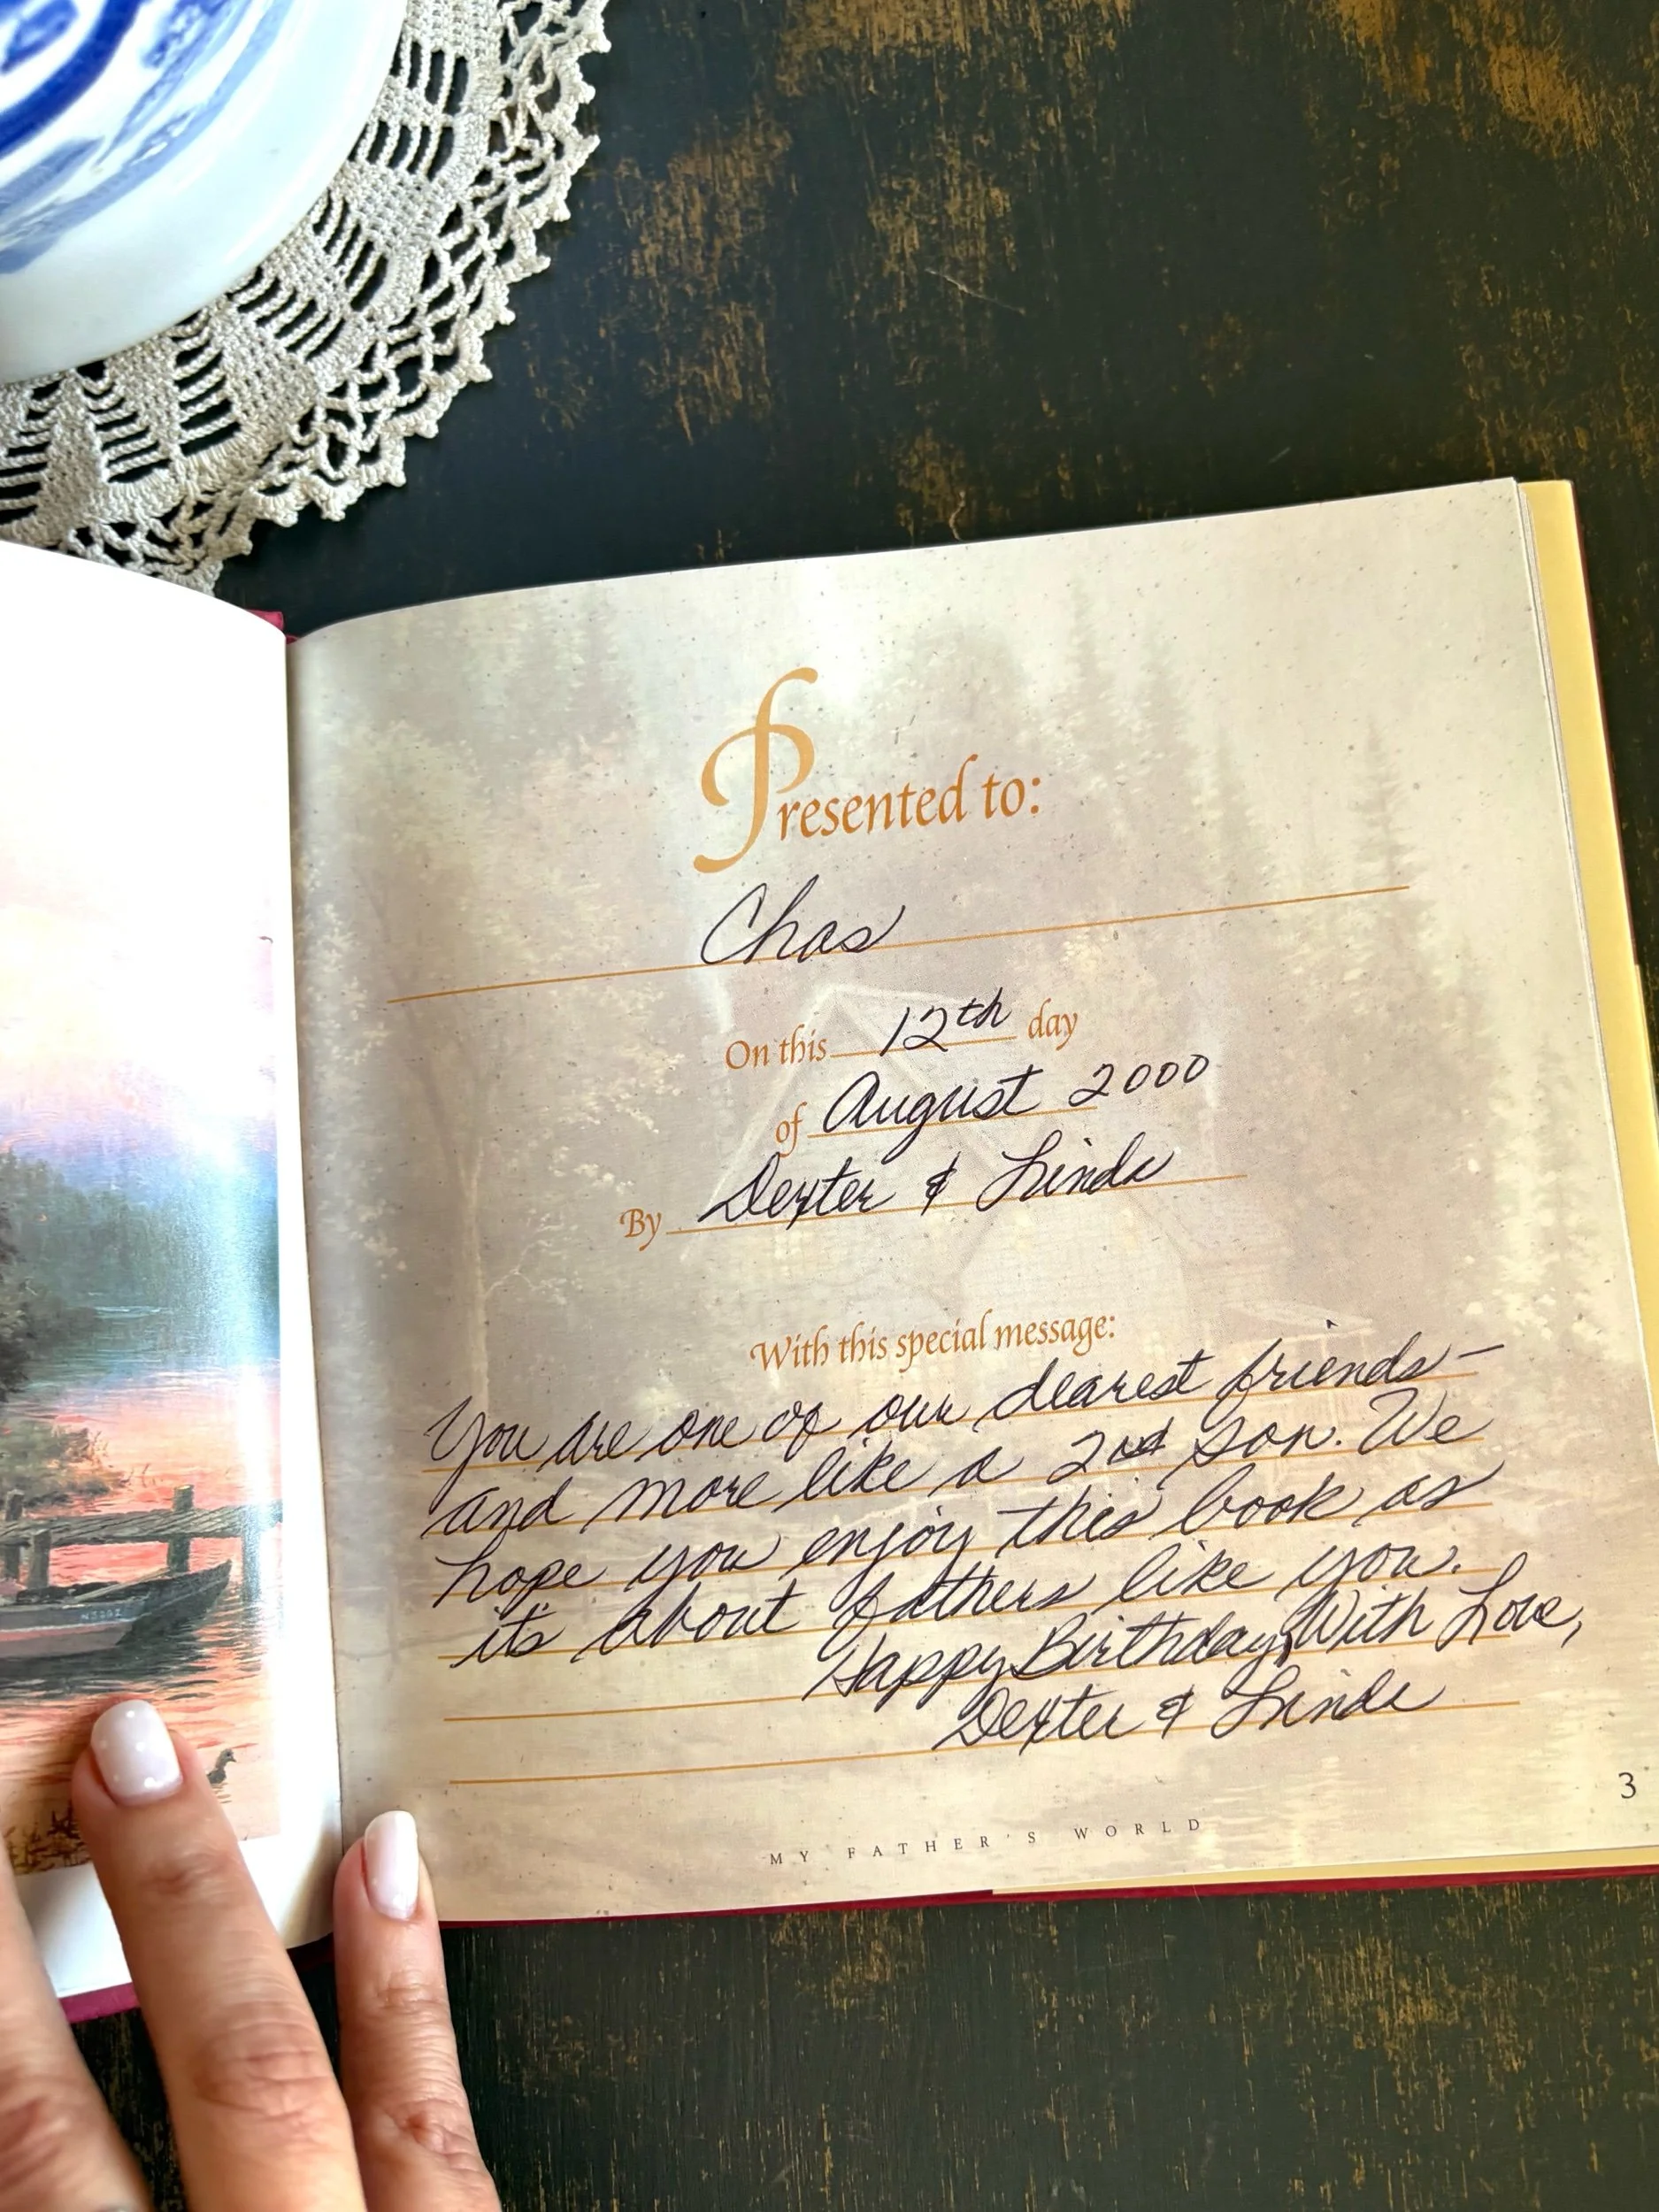 Presented to:
Chas
On this 12th day
of August 2000
By Dexter & Linda
With this special message:
You are one of our dearest friends—
and more like a 2nd son. We
hope you enjoy this book as
it's about fathers like you.
Happy Birthday, With Love,
Dexter & Linda
3
MY FATHER'S WORLD